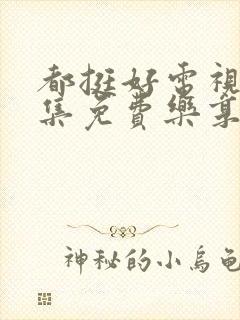 都挺好電視
集免費樂
神秘的小烏龜